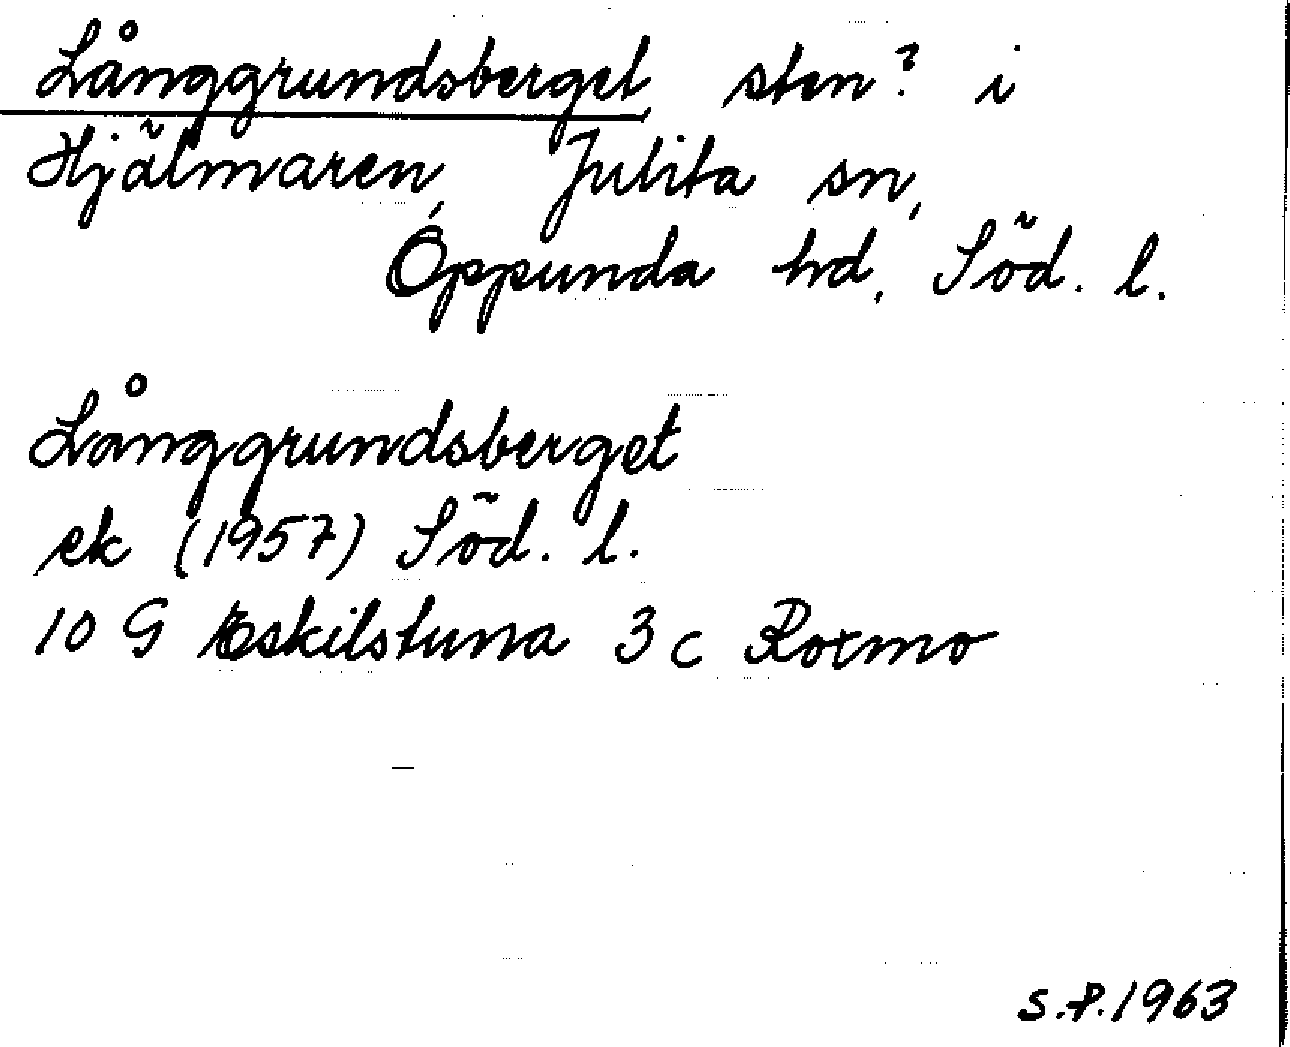 Långgrundsberget, sten? i
Hjälmaren, Julita sn,
Oppunda hd, Söd. l.
Långgrundsberget
ek (1957) Söd. l.
10 G Eskilstuna 3 c Roxmo
S.P. 1963